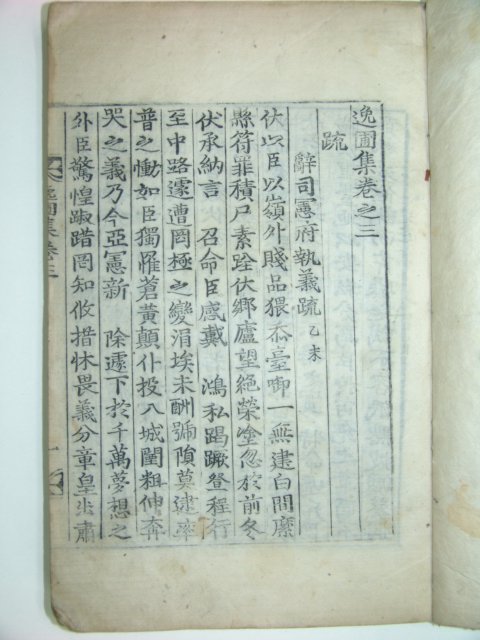 逸圃集卷之三
疏
辭司憲府執義疏 乙未
伏以臣以嶺外賤品猥忝臺啣一無逮白間縻
縣符罪積尸素踪伏鄉廬望絶榮塗忽於前冬
伏承納言 召命臣感戴 鴻私蹈蹶登程行
至中路遽遭罔極之變涓埃未酬號隕莫逮率
普之慟如臣獨罹蒼黃顚仆投入城闉粗伸奔
哭之義乃今亞憲新 除遽下於千萬夢想之
外臣驚惶踧踖罔知攸措怵畏義分章皇出肅